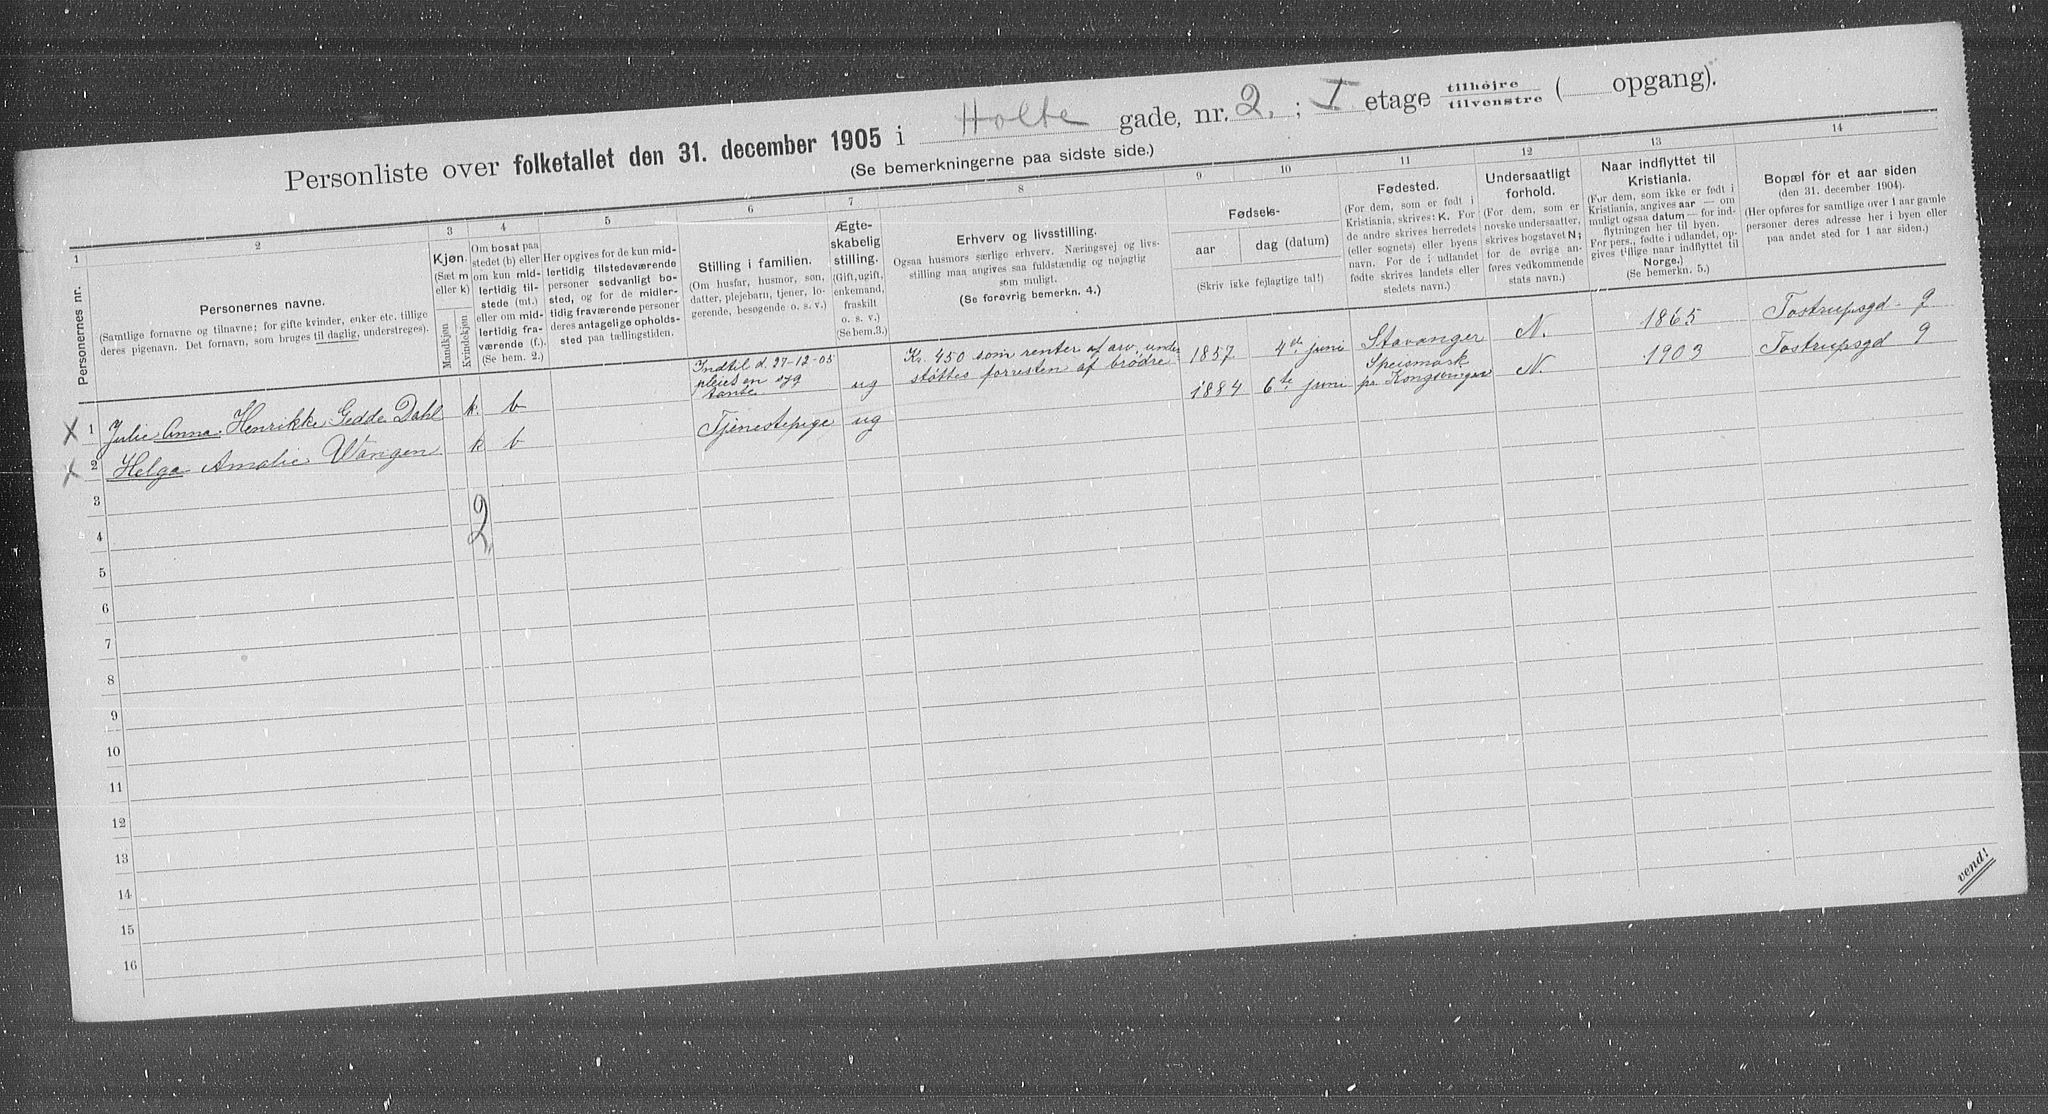 Personliste over folketallet den 31. december 1905 i Holte gade, nr. 2. ; I etage tilhøjre / tilvenstre ( opgang).
(Se bemerkningerne paa sidste side.)
1 2 3 4 5 6 7 8 9 10 11 12 13 14
Personernes nr.
Personernes navne.
(Samtlige fornavne og tilnavne; for gifte kvinder, enker etc. tillige
deres pigenavn. Det fornavn, som bruges til daglig, understreges).
Kjøn.
(Sæt m
eller k)
Mandkjøn.
Kvindekjøn.
Om bosat paa
stedet (b) eller
om kun mid-
lertidig til-
stede (mt.)
eller om mid-
lertidig fra-
værende (f.).
(Se bem. 2.)
Her opgives for de kun mid-
lertidig tilstedeværende
personer sedvanligt bo-
sted, og for de midler-
tidig fraværende personer
deres antagelige opholds-
sted paa tællingstiden.
Stilling i familien.
(Om husfar, husmor, søn,
datter, plejebarn, tjener, lo-
gerende, besøgende o. s. v.)
Ægte-
skabelig
stilling.
(Gift, ugift,
enkemand,
fraskilt
o. s. v.)
(Se bem.3.)
Erhverv og livsstilling.
Ogsaa husmors særlige erhverv. Næringsvej og livs-
stilling maa angives saa fuldstændig og nøjagtig
som muligt.
(Se forøvrig bemerkn. 4.)
Fødsels-
aar dag (datum)
(Skriv ikke fejlagtige tal!)
Fødested.
(For dem, som er født i
Kristiania, skrives: K. For
de andre skrives herredets
(eller sognets) eller byens
navn. For de i udlandet
fødte skrives landets eller
stedets navn.)
Undersaatligt
forhold.
(For dem, som er
norske undersaatter,
skrives bogstavet N;
for de øvrige an-
føres vedkommende
stats navn.)
Naar indflyttet til
Kristiania.
(For dem, som ikke er født i
Kristiania, angives aar — om
muligt ogsaa datum — for ind-
flytningen her til byen.
For pers., fødte i udlandet, op-
gives tillige naar indflyttet til
Norge.)
(Se bemerkn. 5.)
Bopæl for et aar siden
(den 31. december 1904).
(Her opføres for samtlige over 1 aar gamle
personer deres adresse her i byen eller
paa andet sted for 1 aar siden.)
X 1 Julie Anna Henrikke Gedde Dahl k. b Indtil d. 27-12-05
pleiet en syg
tante. ug Kr. 450 som renter af arv, under
støttes forresten af brødre 1857 4de juni Stavanger N. 1865 Tostrupsgd - 9
X 2 Helga Amalie Wangen k b Tjenestepige ug 1884 6te juni Speismark
pr Kongsvinger N. 1903 Tostrupsgd 9
3
2
4
5
6
7
8
9
10
11
12
13
14
15
16
vend!